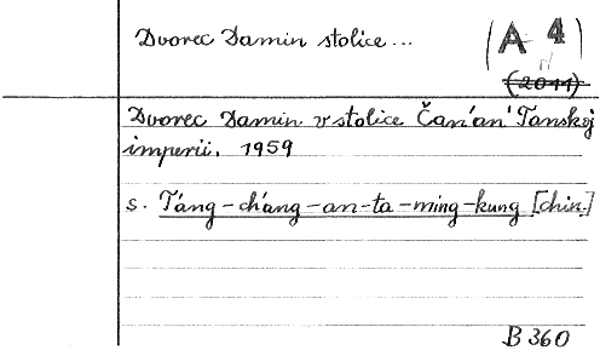 Dvorec Damin stolice...
(A 4)
(2011)
Dvorec Damin v stolice Čan'an' Tanskoj
imperii. 1959
s. Táng-ch'áng-an-ta-ming-kung [chin.]
B 360